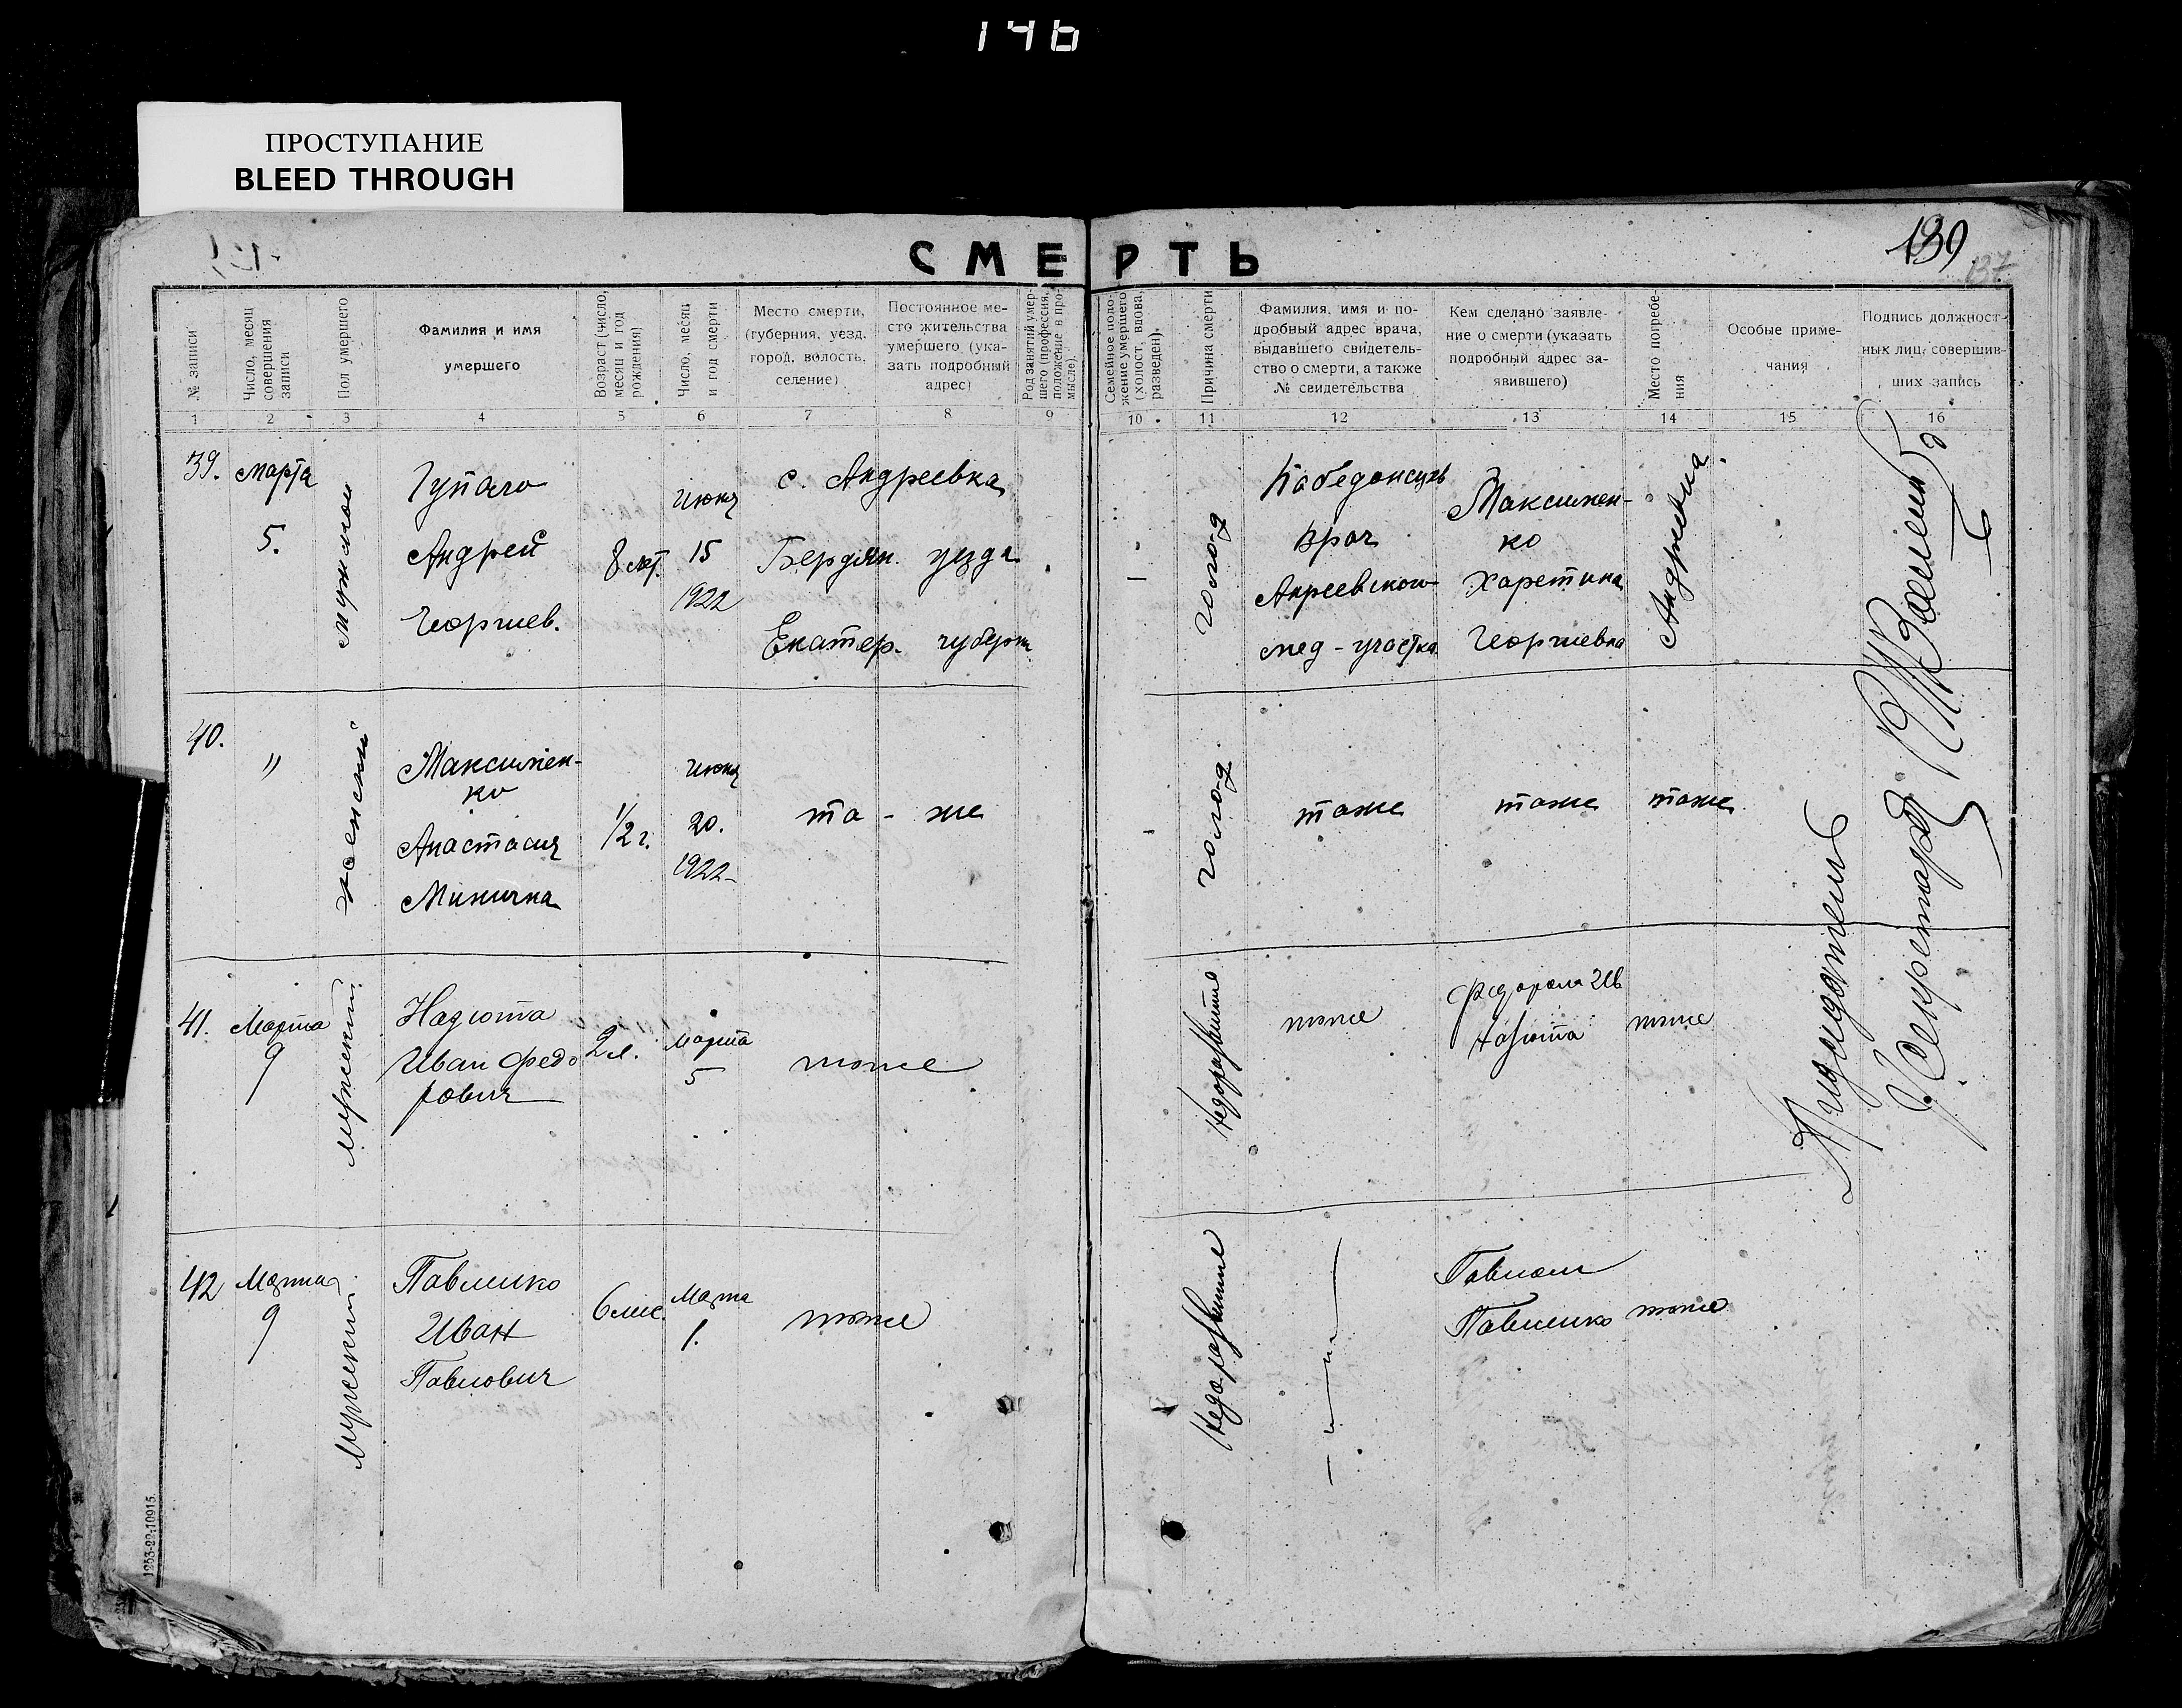 146
ПРОСТУПАНИЕ
BLEED THROUGH
139
137
СМЕРТЬ
№ записи
Число, месяц совершения записи
Пол умершего
Фамилия и имя умершего
Возраст (число, месяц и год рождения)
Число, месяц и год смерти
Место смерти, (губерния, уезд, город, волость, селение)
Постоянное место жительства умершего (указать подробный адрес)
Род занятий умершего (профессия, положение в промысле).
Семейное положение умершего (холост, вдова, разведен).
Причина смерти
Фамилия, имя и подробный адрес врача, выдавшего свидетельство о смерти, а также № свидетельства
Кем сделано заявление о смерти (указать подробный адрес заявившего)
Место погребения
Особые примечания
Подпись должностных лиц, совершивших запись
1 2 3 4 5 6 7 8 9 10 11 12 13 14 15 16
39.
Марта
5.
мужской
Андрей
Георгиев.
8 лет.
Июня
15
1922
с. Андреевка
Бердян. уезда
Екатер. губерн.
голод
врач
мед-участка
Максимен-
ко
Харетина
Георгиевна
Андреевка
40.
"
женский
Максимен-
ко
Анастасия
1/2 г.
Июня
20.
1922
та-же
голод
таже
таже
таже
41.
Марта
9
мужский
Надюта
Иван Федо
рович
2 л.
Марта
5
тоже
Недоразвитие
тоже
Надюта
тоже
42
Марта
9
Мужский
Павленко
Иван
Павлович
6 мес.
Марта
1.
тоже
Недоразвитие
— " — " —
Павленко
тоже
Председатель
Секретарь
1253-22-10915